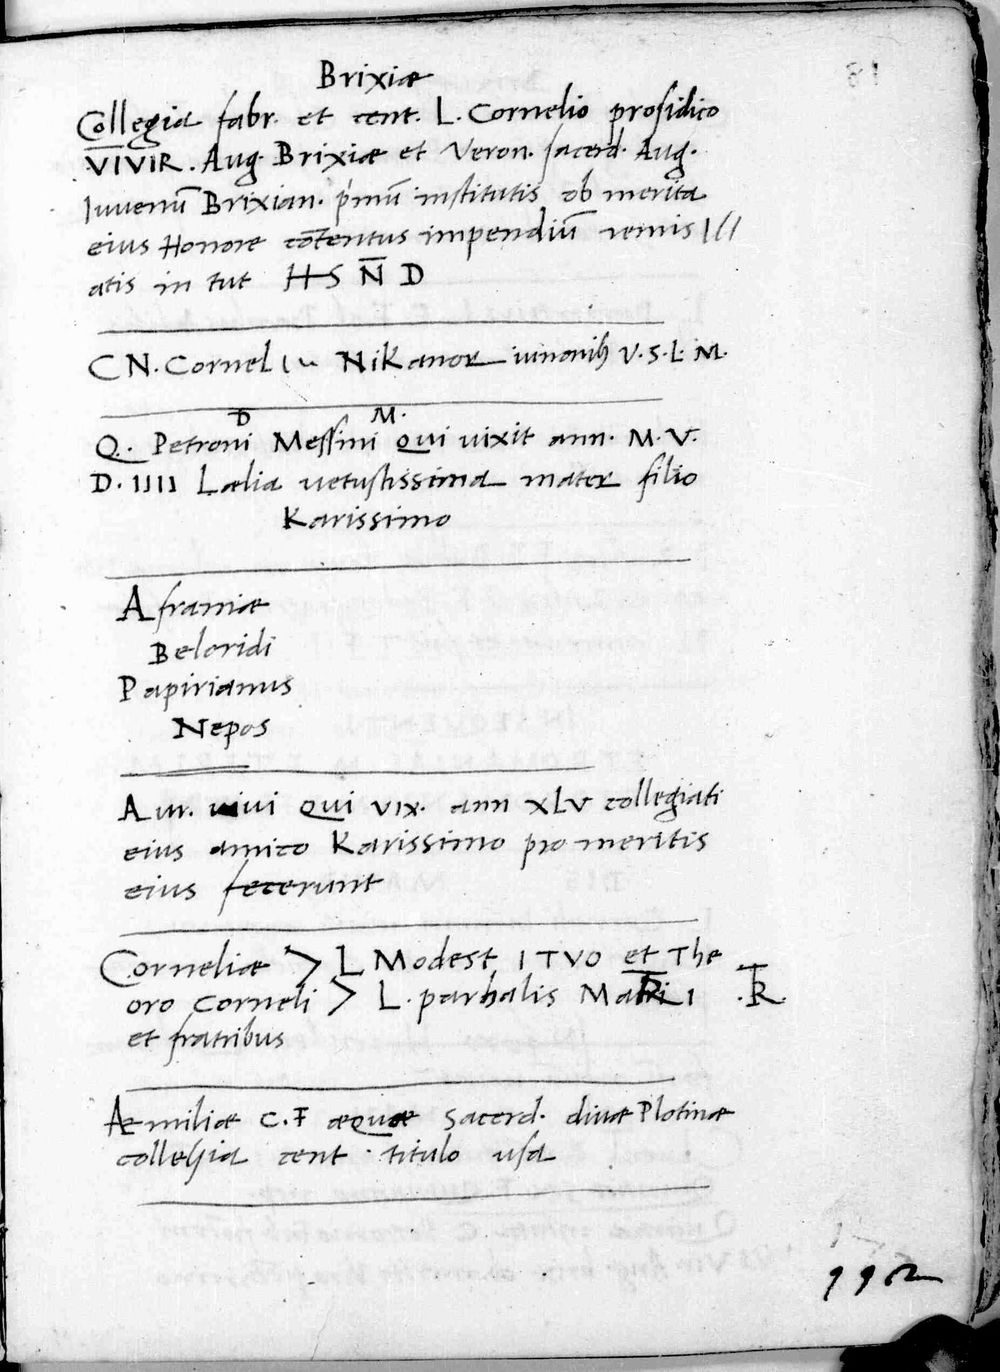 Brixiæ
Collegia fabr. et cent. L. Cornelio prosidico
V̅I̅VIR. Aug. Brixiæ et Veron. sacerd. Aug.
Iuuenū Brixian. pͥmū institutis ob merita
eius Honore cōtentus impendiū remis ///
atis in tut HS N̅ D
CN. Cornel Nikanor V.S.L.M.
D M.
Q. Petroni Messini qui uixit ann. M. V.
D. IIII Lælia uetustissima mater filio
Karissimo
Afraniæ
Beloridi
Papirianus
Nepos
Aur. uiui qui vix. ann XLV collegiati
eius amico Karissimo pro meritis
eius fecerunt
Corneliæ > L Modest ITVO et The
oro Corneli > L. parhalis Matri .R.
et fratribus
Æmiliæ C. F æquæ Sacerd. diuæ Plotinæ
collegia cent. titulo usa
192
18